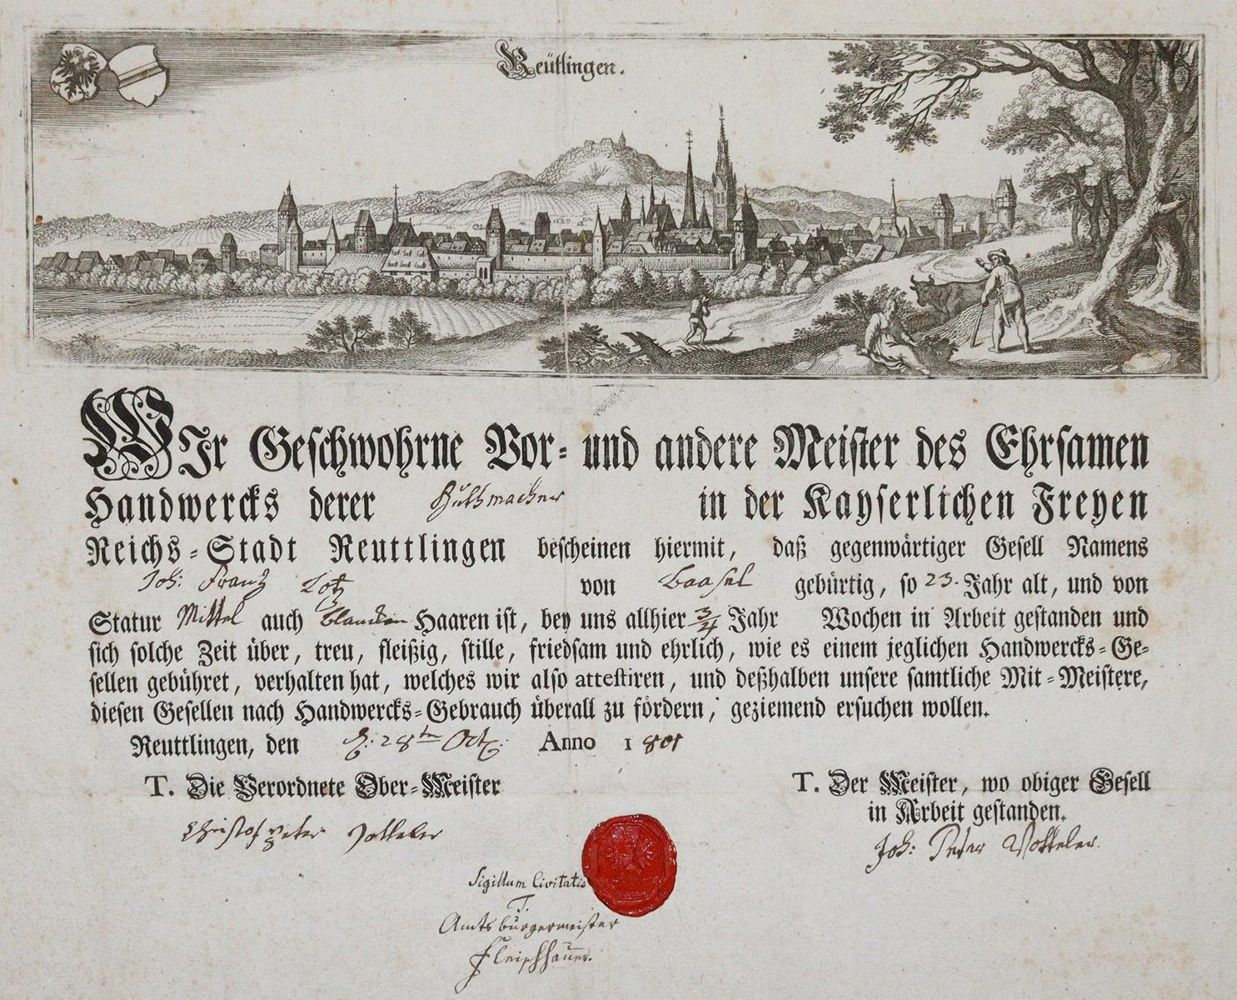 Reütlingen.
WIr Geschwohrne Vor- und andere Meister des Ehrsamen
Handwercks derer Huthmacher in der Kayserlichen Freyen
Reichs-Stadt Reuttlingen bescheinen hiermit, daß gegenwärtiger Gesell Namens
Joh: Franz Lotz von Baasel gebürtig, so 23. Jahr alt, und von
Statur Mittel auch blanden Haaren ist, bey uns allhier 3/4 Jahr Wochen in Arbeit gestanden und
sich solche Zeit über, treu, fleißig, stille, friedsam und ehrlich, wie es einem jeglichen Handwercks-Ge-
sellen gebühret, verhalten hat, welches wir also attestiren, und deßhalben unsere samtliche Mit-Meistere,
diesen Gesellen nach Handwercks-Gebrauch überall zu fördern, geziemend ersuchen wollen.
Reuttlingen, den d: 28tn Oct: Anno 1801
T. Die Verordnete Ober-Meister
T. Der Meister, wo obiger Gesell
in Arbeit gestanden.
Christof Peter Votteler
Joh: Peter Votteler.
Sigillum Civitatis
T.
Amtsbürgermeister
Fleischhauer.